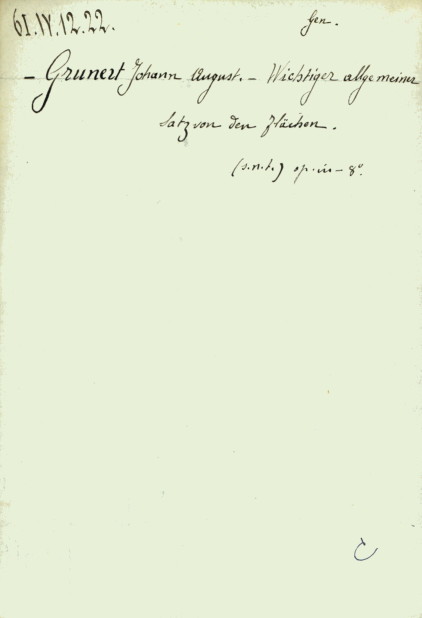 61.IV.12.22.
Gen.
- Grunert Johann August. - Wichtiger allgemeiner
Satz von den Flächen.
(s.n.t.) op. in - 8°.